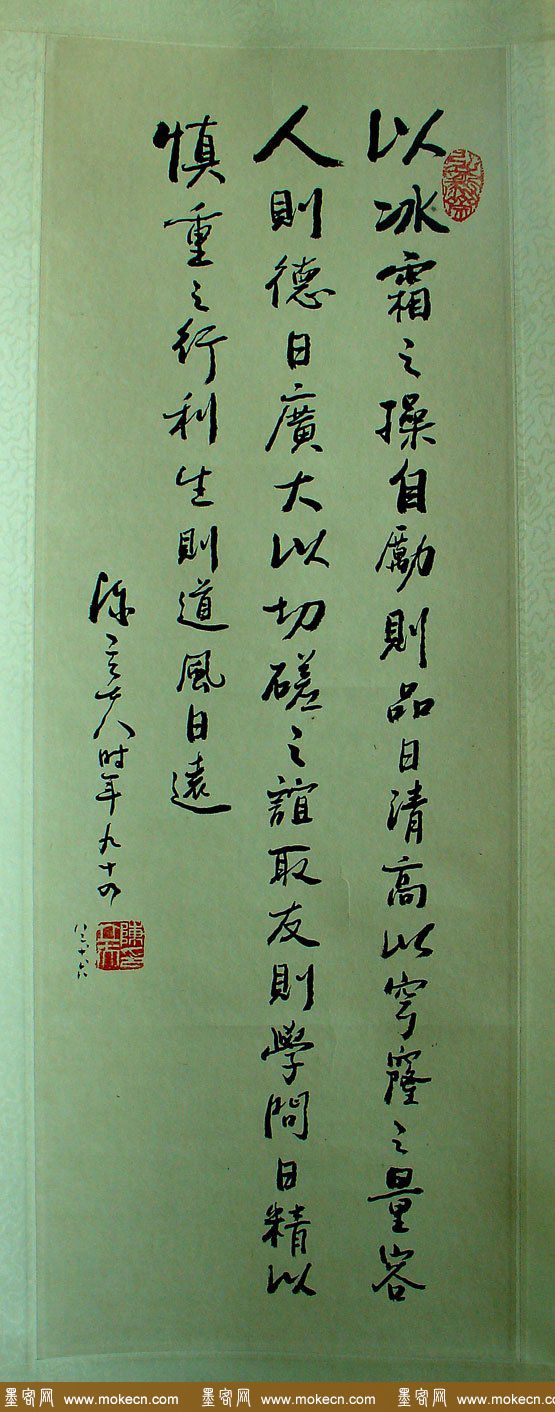 以冰霜之操自勵則品日清高以穹窿之量容
人則德日廣大以切磋之誼取友則學問日精以
慎重之行利生則道風日遠
陳立夫 時年九十四
墨客网 www.mokecn.com 墨客网 www.mokecn.com 墨客网 www.mokecn.com